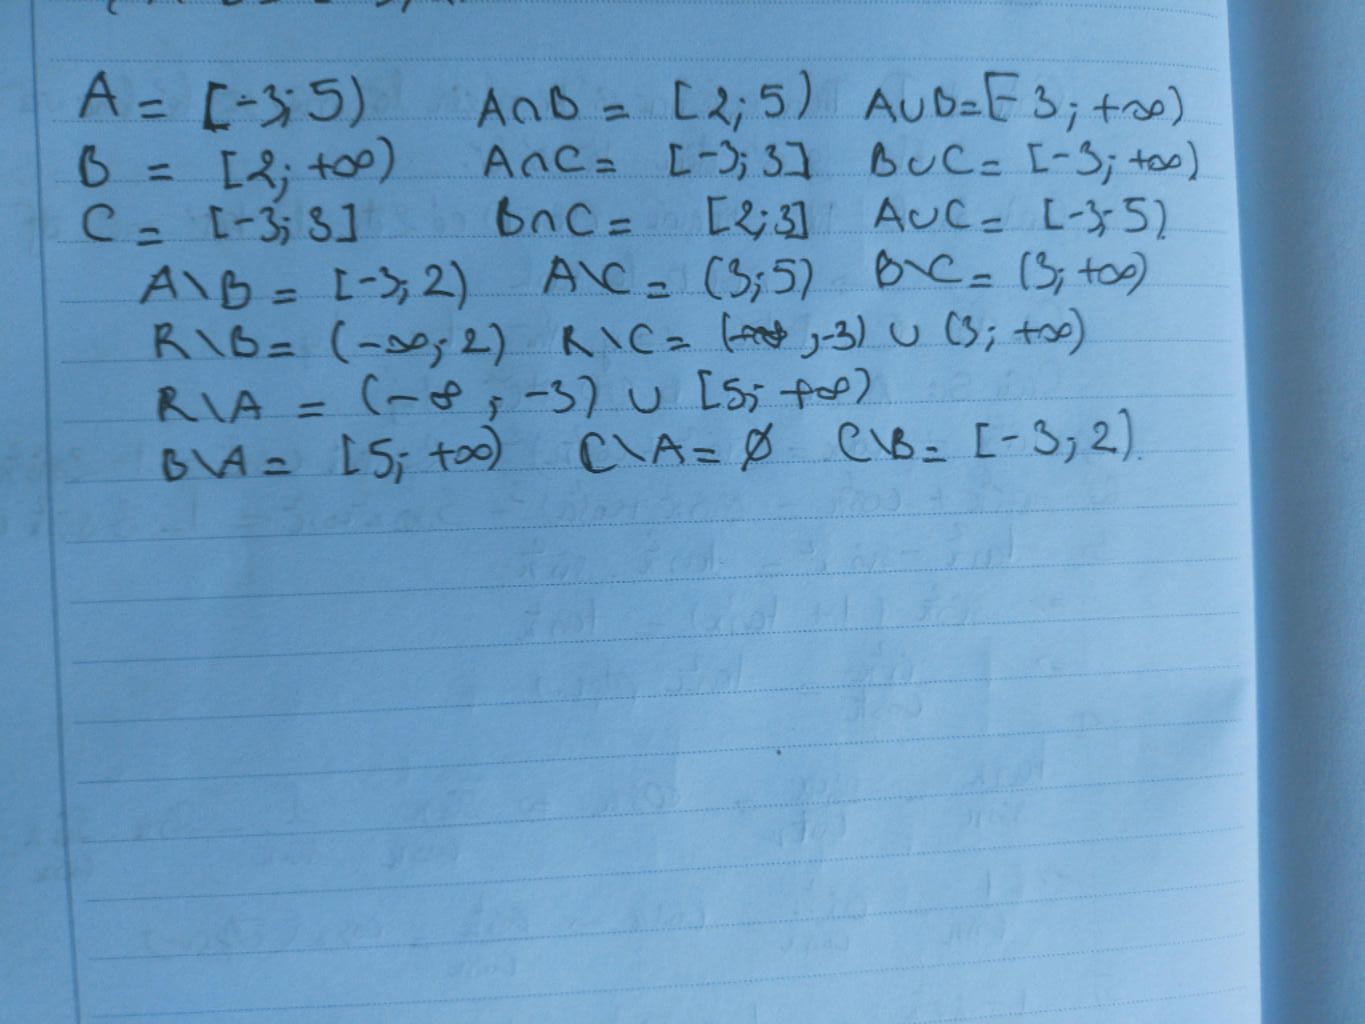 A = [-3; 5) A∩B = [2; 5) A∪B = [-3; +∞)
B = [2; +∞) A∩C = [-3; 3] B∪C = [-3; +∞)
C = [-3; 3] B∩C = [2; 3] A∪C = [-3; 5)
A\B = [-3; 2) A\C = (3; 5) B\C = (3; +∞)
R\B = (-∞; 2) R\C = (-∞, -3) ∪ (3; +∞)
R\A = (-∞, -3) ∪ [5; +∞)
B\A = [5; +∞) C\A = ∅ C\B = [-3; 2).